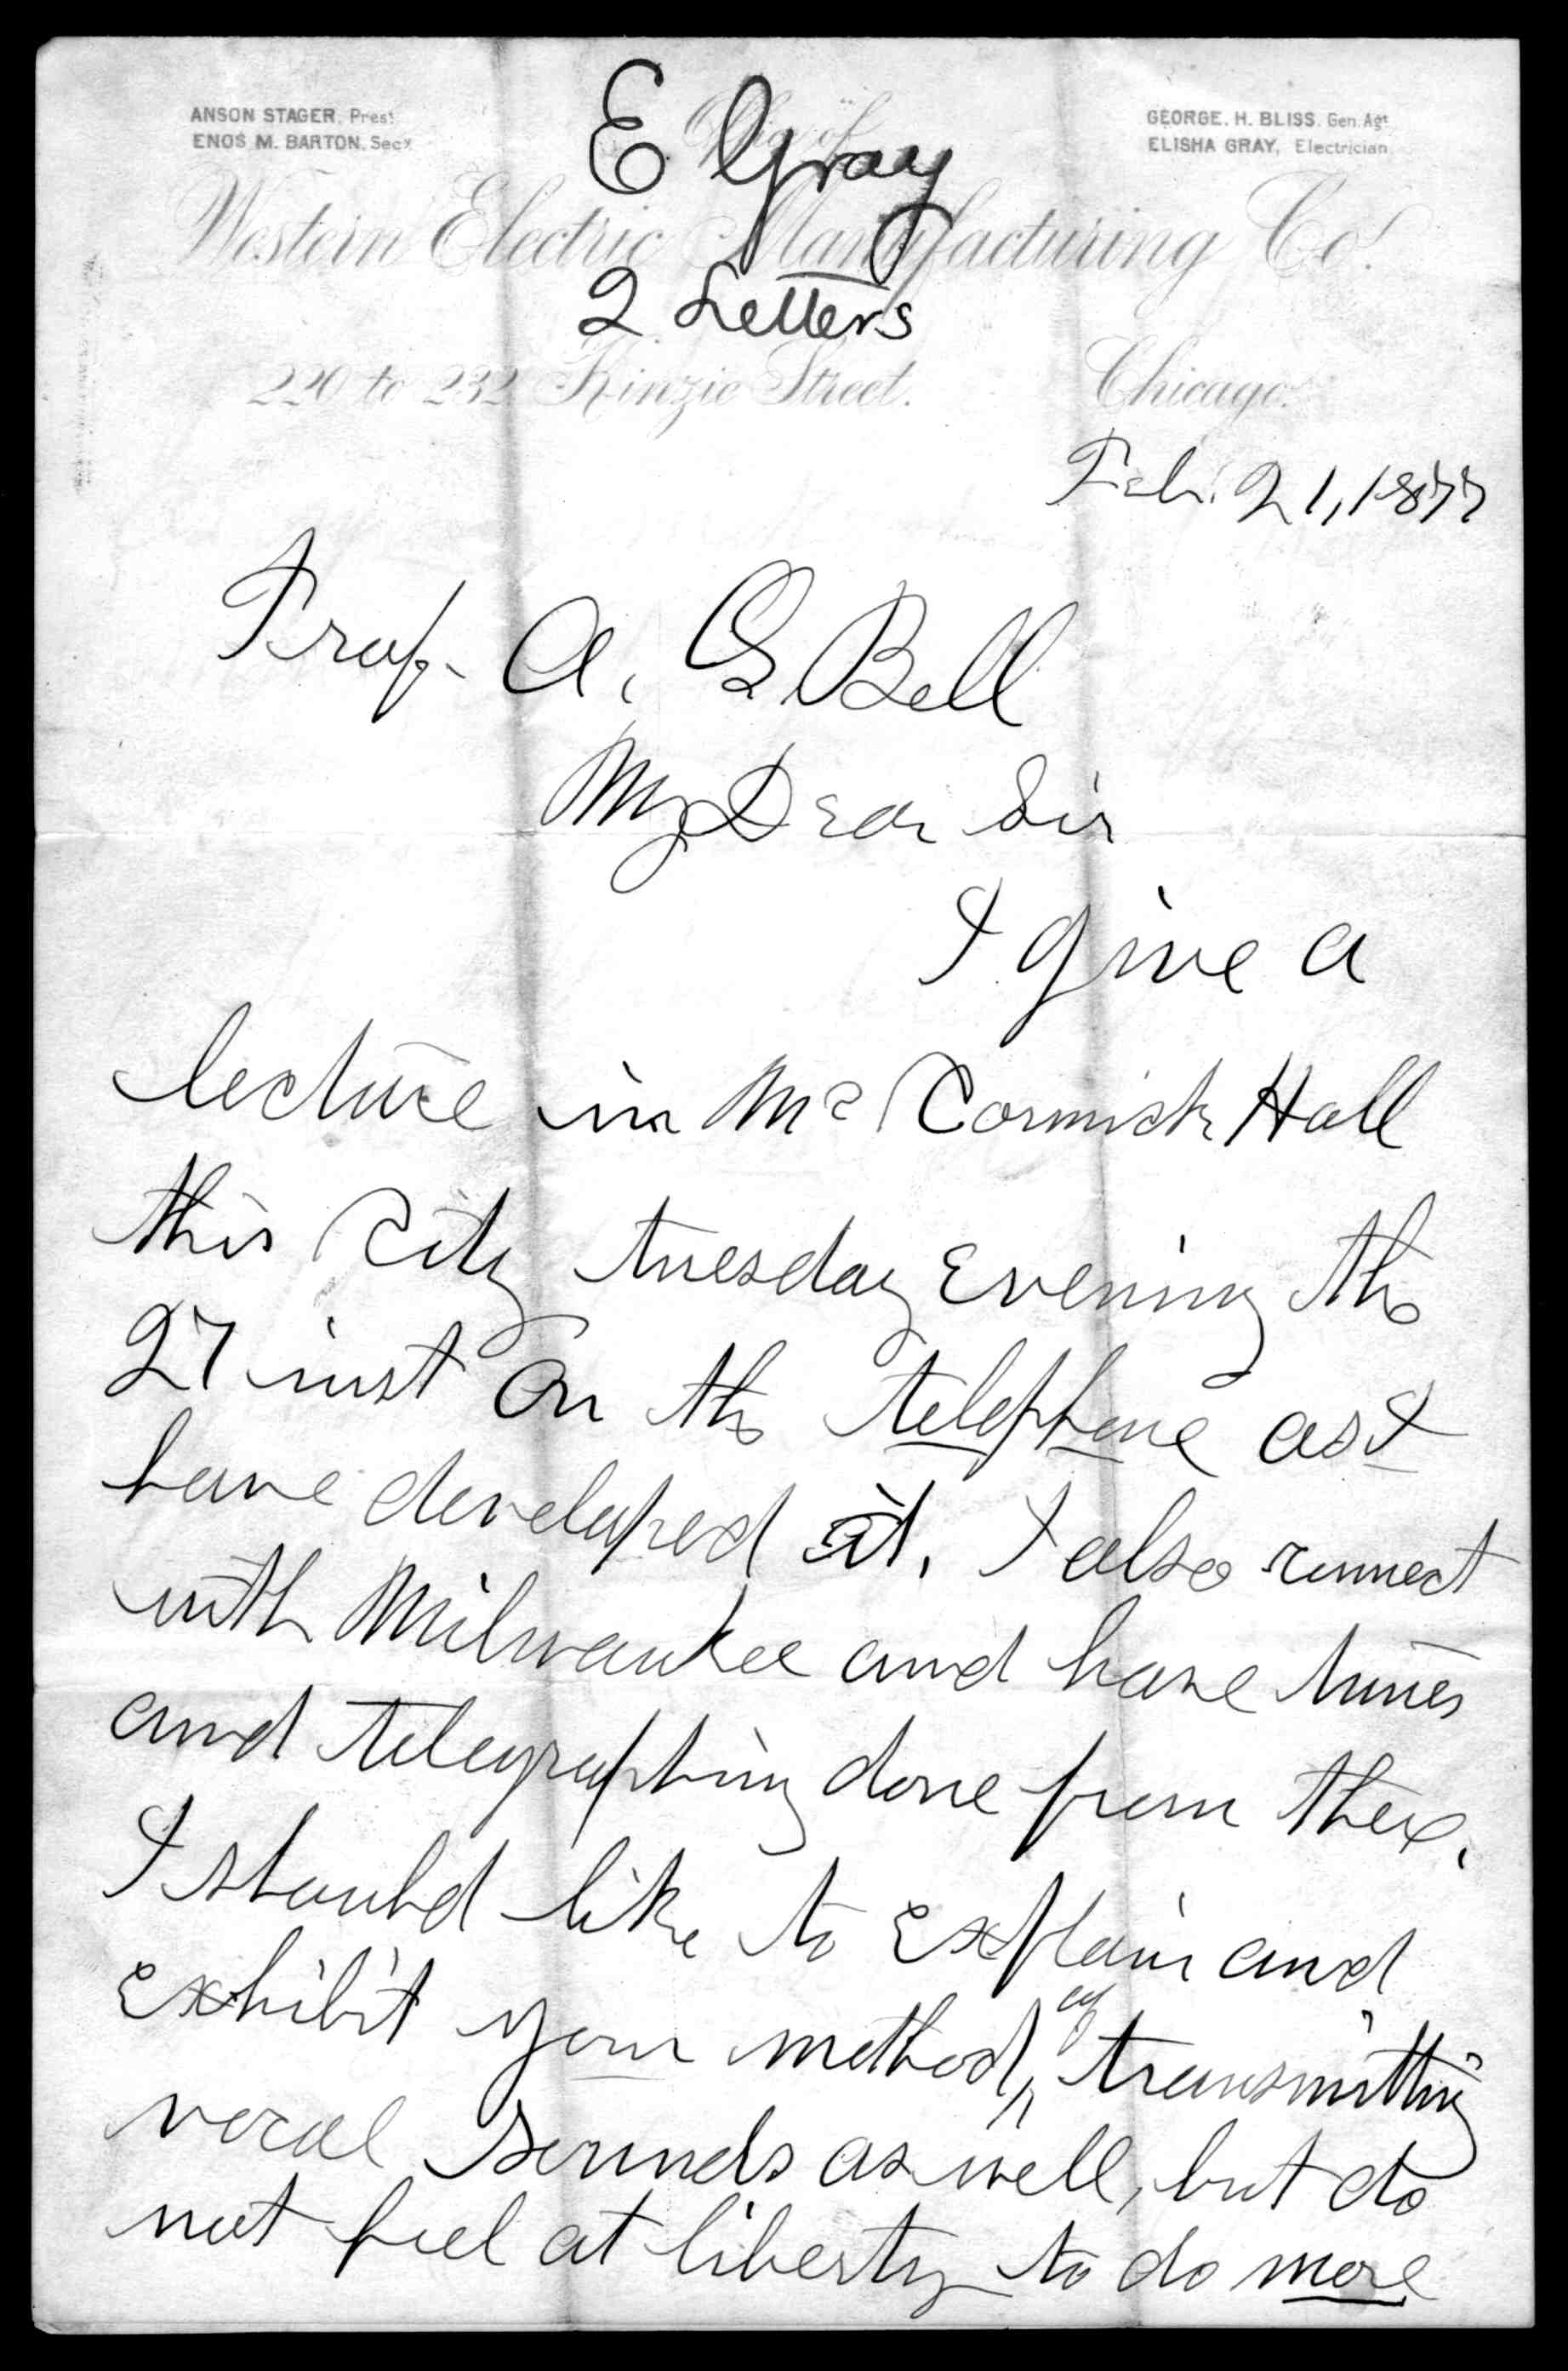 ANSON STAGER, Prest
ENOS M. BARTON, Secy
GEORGE. H. BLISS. Gen. Agt
ELISHA GRAY, Electrician
Office of
E Gray
Western Electric Manufacturing Co.
2 Letters
220 to 232 Kinzie Street. Chicago.
Feb. 21, 1877
Prof. A. G. Bell
My Dear Sir
I give a
lecture in Mc Cormick Hall
this City tuesday Evening the
27 inst On the telephone as I
have developed it. I also connect
with Milwaukee and have tunes
and telegraphing done from there.
I should like to Explain and
Exhibit your method, of transmitting
vocal sounds as well, but do
not feel at liberty to do more